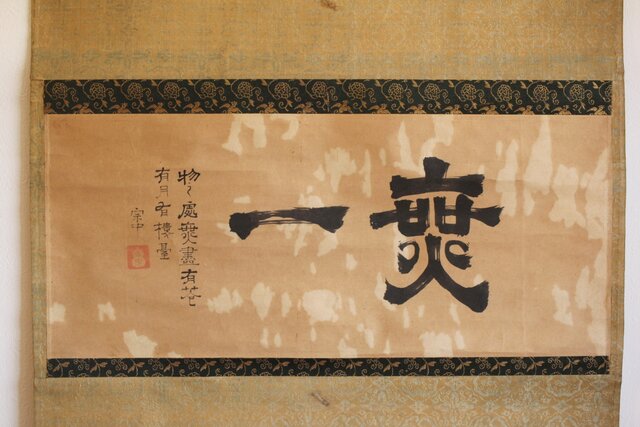 無一
物々處無盡有花
有月有樓臺
宗中